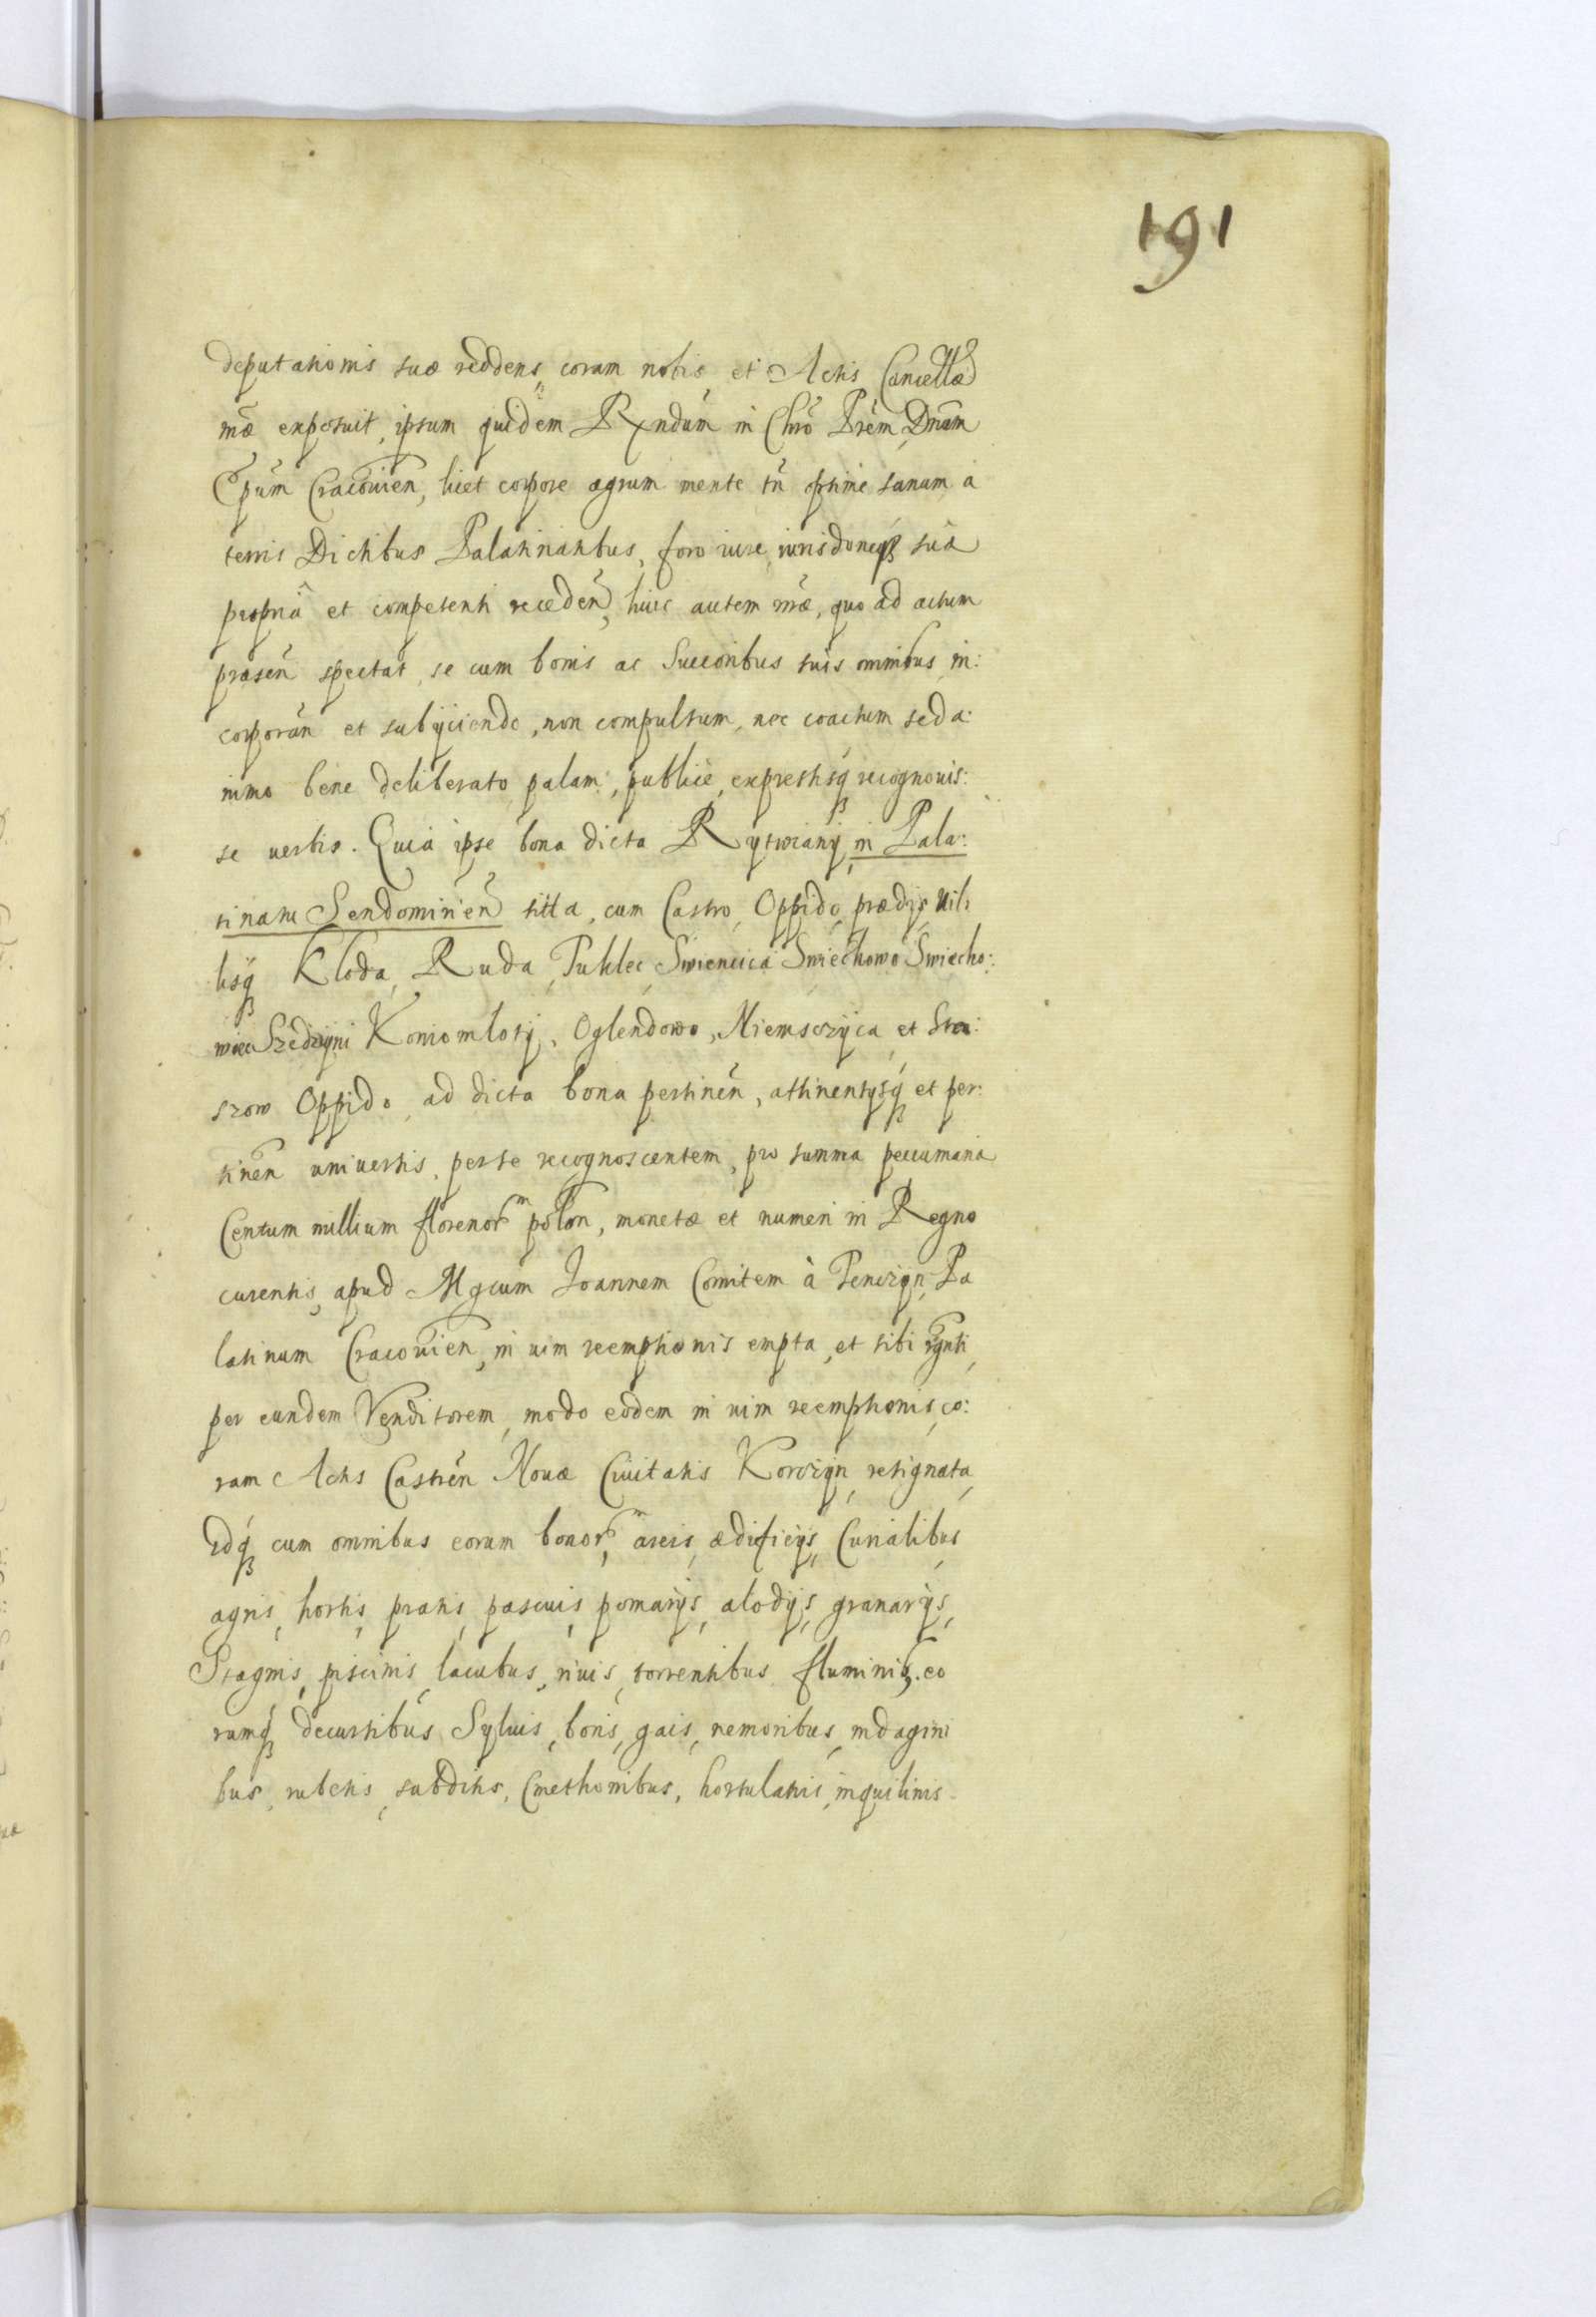 191
deputationis suæ reddens, coram nobis et Actis Cancellæ
nr̃æ exposuit, ipsum quidem Rx̃ndum in Chrõ Pr̃em Dnũm
Ep̃um Cracovien̄, licet corpore ægrum mente tñ optime sanum à
terris Dictibus Palatinatibus, foro iure, iurisdoneq́ȝ suâ
propriâ et competenti receden̄, huic autem nr̃æ, quo ad actum
præsen̄ spectat, se cum bonis ac Succoribus suis omnibus in:
corporan̄ et subÿciendo, non compulsum, nec coactum sed a:
nimo bene deliberato palam, publice, expressisq́ȝ recognouis:
se uerbis. Quia ipse bona dicta Rytwiany in Pala:
tinatu Sendomirien̄ sitta, cum Castro, Oppido, prædÿs Uil:
lisq́ȝ Kłoda, Ruda, Tuklec, Swiencica Swiechowo Swiecho:
wiec Szedzyni Koniomloty, Oglendowo, Niemsczyca, et Sta:
szow Oppido, ad dicta bona pertinen̄, attinentÿsq́ȝ et per:
tinen̄ uniuersis, per se recognoscentem, pro summa peccuniaria
Centum millium florenorm̄ polon̄, monetæ et numeri in Regno
curentis, apud Mgcum Joannem Comitem à Tenczyn, Pa
latinum Cracouien̄, in uim reemptionis empta, et sibi rgnti
per eundem Venditorem, modo eodem in uim reemptionis, co:
ram Actis Castren̄ Nouæ Ciuitatis Korczyn, resignata,
Idq́ȝ cum omnibus eorum bonorm̄, areis, ædificÿs, Curialibus,
agris, hortis, pratis, pascuis, pomarÿs, alodÿs, granarÿs,
Stagnis, piscinis, lacubus, riuis, torrentibus fluminibȝ. eo
rumq́ȝ decursibus Syluis, boris, gais, nemoribus, indagini
bus, rubetis, subditis, Cmethonibus, hortulanis, inquilinis